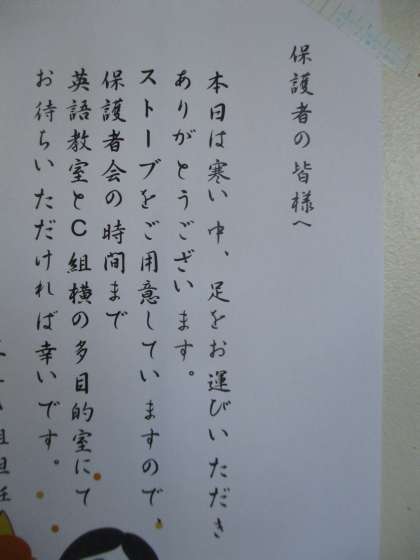 保護者の皆様へ
本日は寒い中、足をお運びいただき
ありがとうございます。
ストーブをご用意していますので、
保護者会の時間まで
英語教室とC組横の多目的室にて
お待ちいただければ幸いです。
組担任